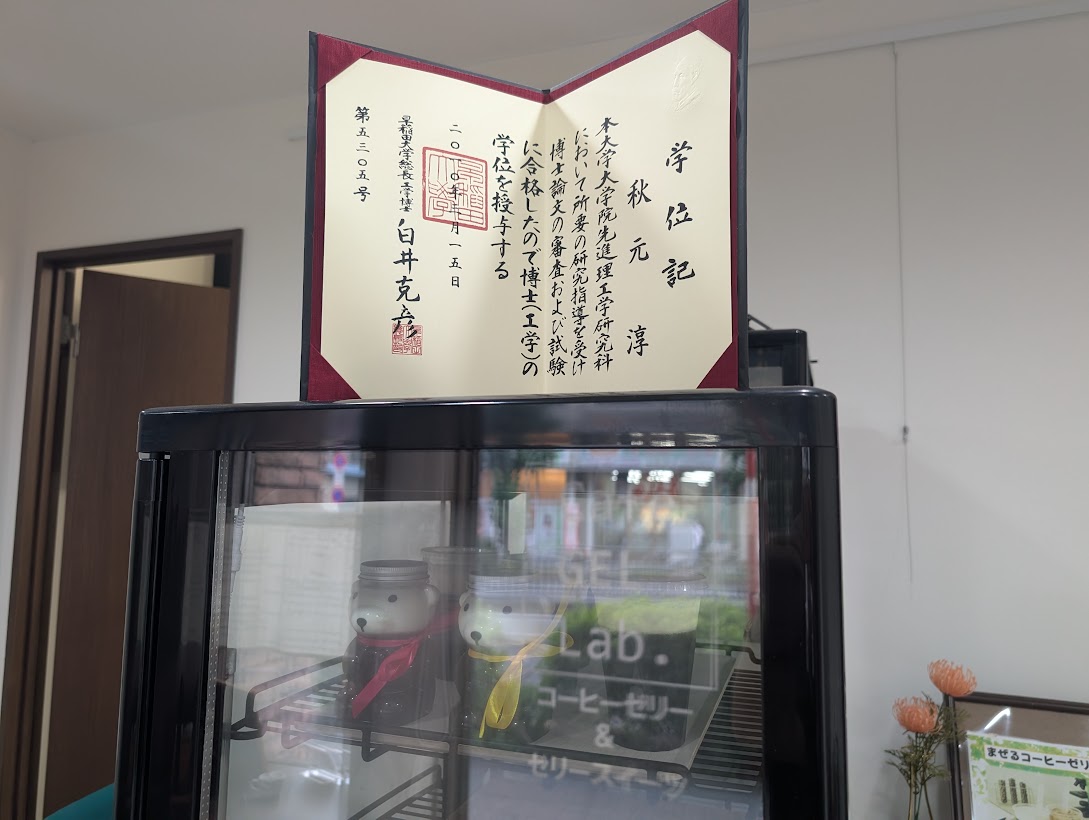 学位記
秋元 淳
本大学大学院先進理工学研究科
において所要の研究指導を受け
博士論文の審査および試験
に合格したので博士(工学)の
学位を授与する
二〇一〇年七月一五日
早稲田大学総長 工学博士 白井克彦
第五三〇五号
GEL
Lab.
コーヒーゼリー
&
ゼリースイーツ
まぜるコーヒーゼリ